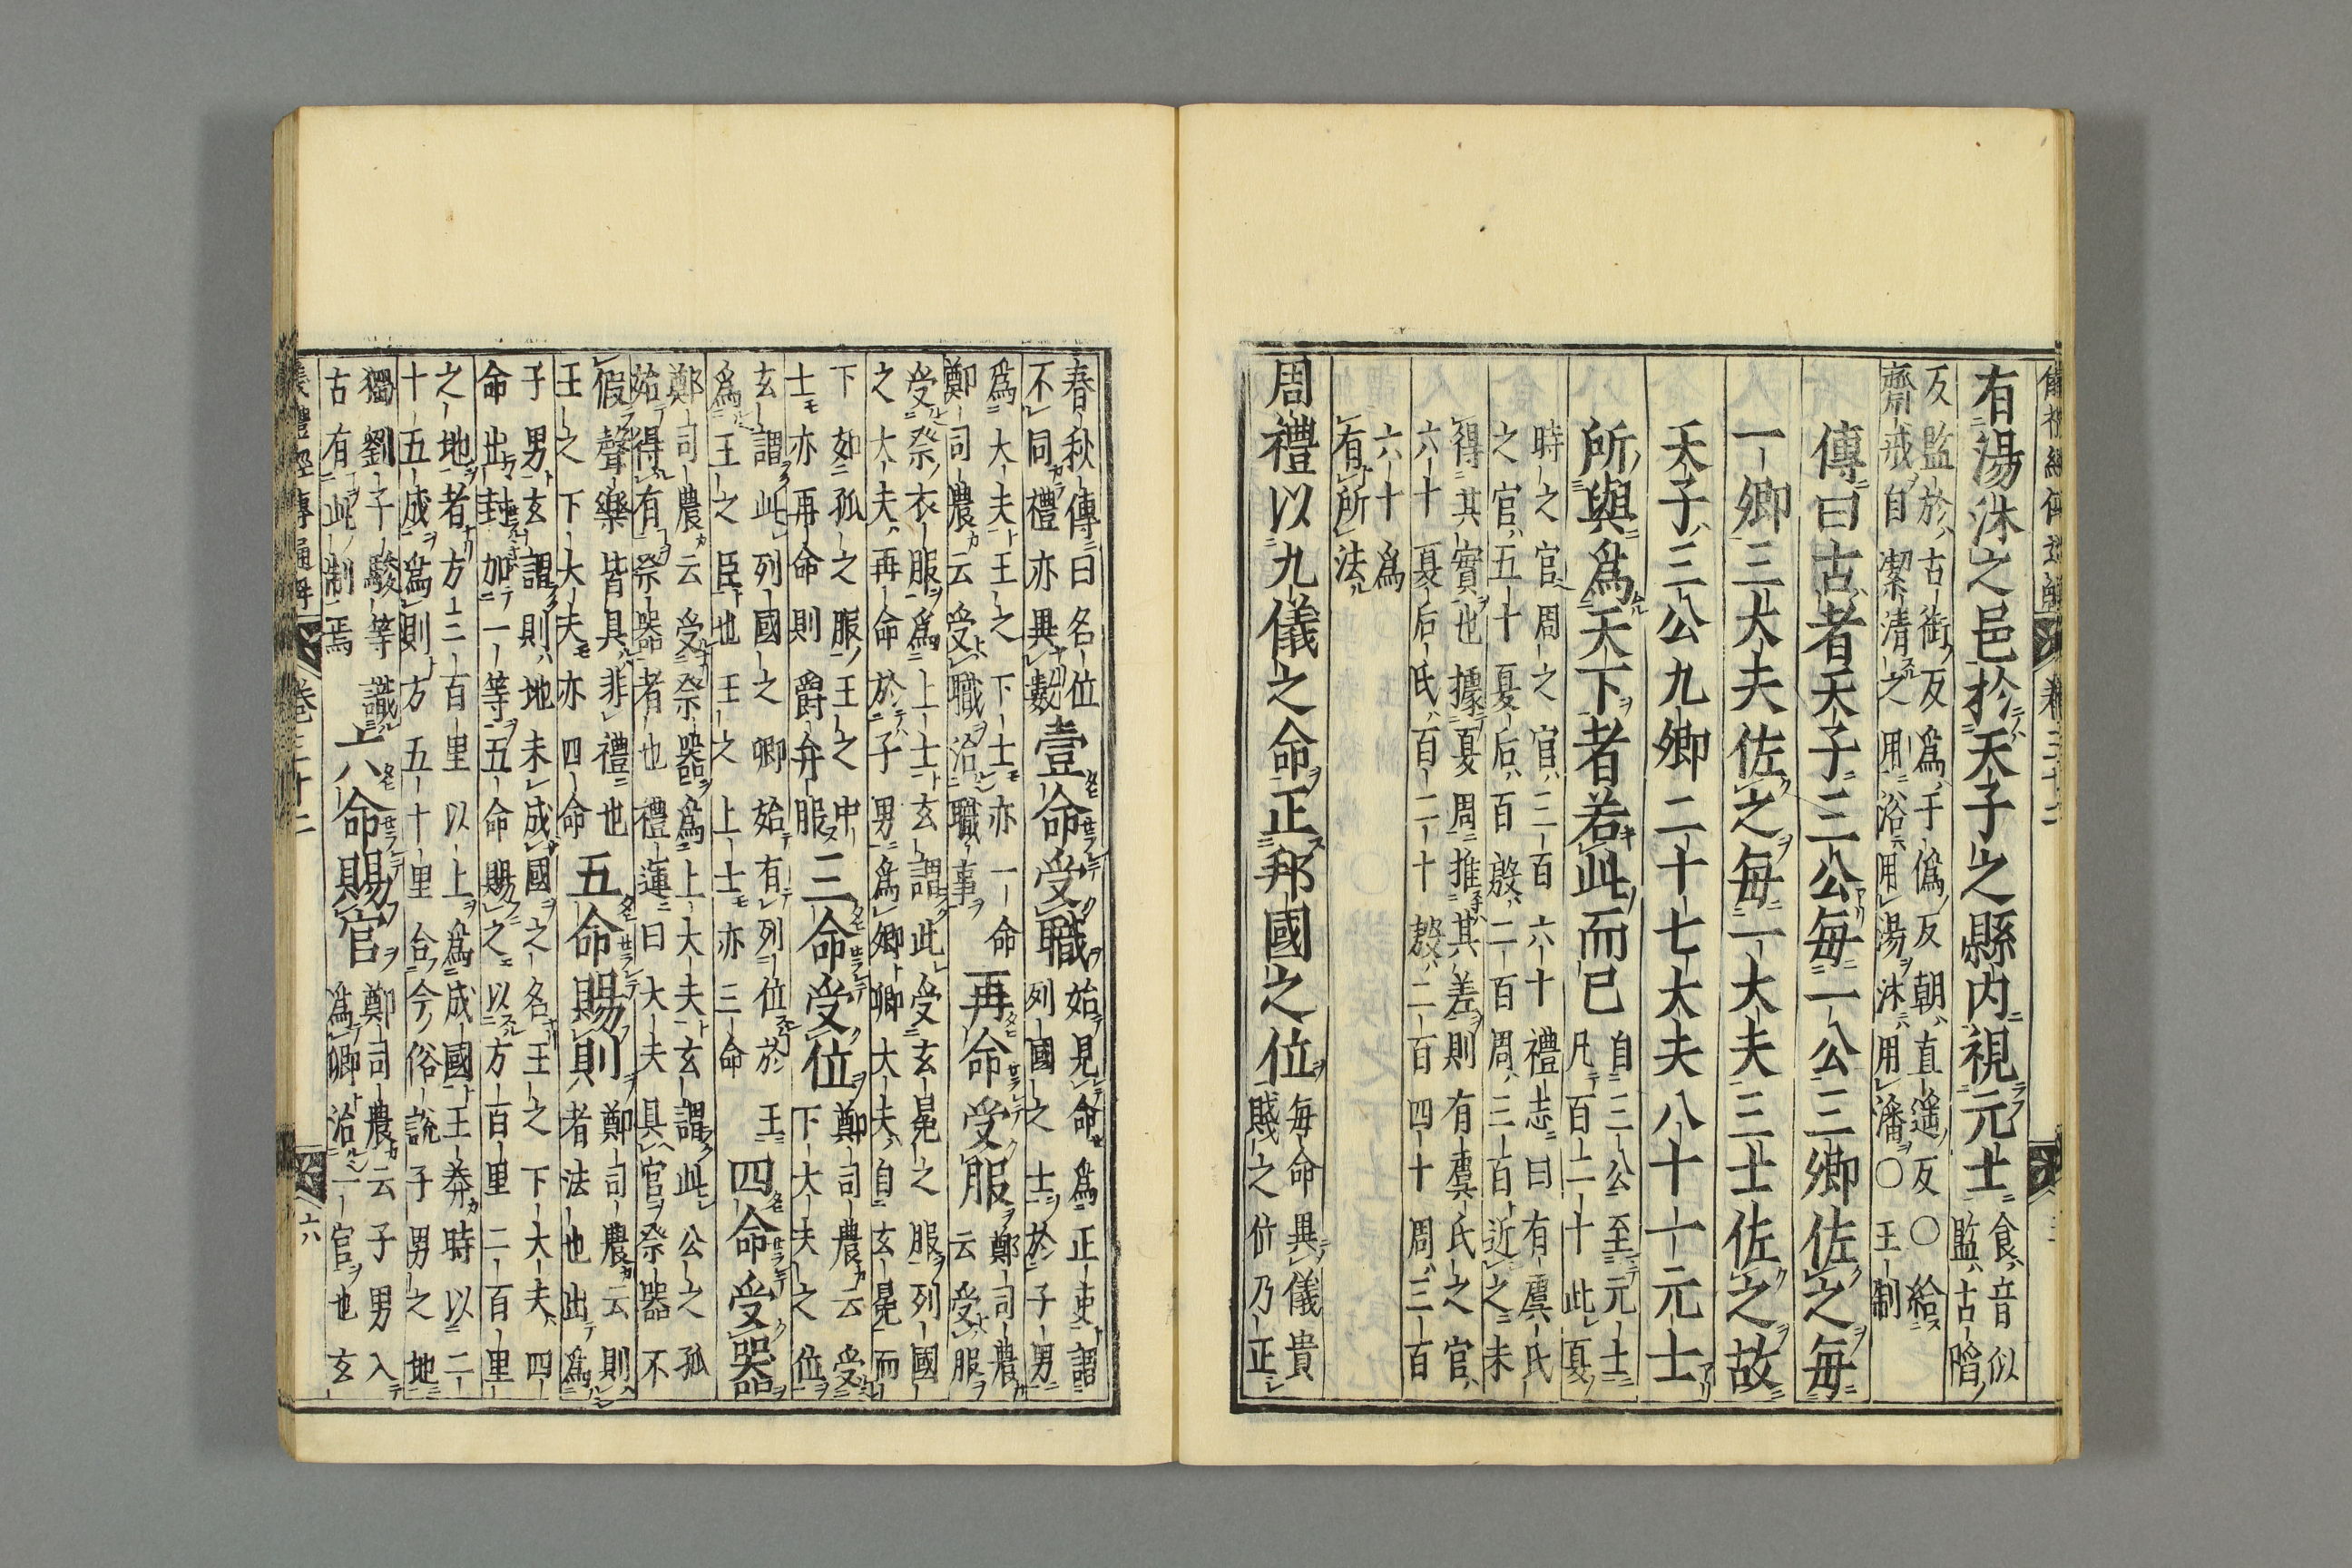 有湯沐之邑於天子之縣内視元士食音似監古陷
反監於古銜反爲于僞反朝直遥反○給
齋戒自潔清之用浴用湯沐用潘○王制
傳曰古者天子三公毎一公三卿佐之毎
一卿三大夫佐之毎一大夫三士佐之故
天子三公九卿二十七大夫八十一元士
所與爲天下者若此而已自三公至元士凡百二十此夏
時之官周之官三百六十禮志曰有虞氏
之官五十夏后百殷二百周三百近之未
得其實也據夏周推其差則有虞氏之官
六十夏后氏百二十殷二百四十周三百
六十爲
有所法
周禮以九儀之命正邦國之位毎命異儀貴賤之位乃正
春秋傳曰名位不同禮亦異數壹命受職始見命爲正吏謂列國之士於子男
爲大夫王之下士亦一命鄭司農云受職治職事再命受服鄭司農云受服
受祭衣服爲上士玄謂此受玄冕之服列國
之大夫再命於子男爲卿卿大夫自玄冕而
下如孤之服王之中士亦再命則爵弁服三命受位鄭司農云受下大夫之位
玄謂此列國之卿始有列位於王
爲王之臣也王之上士亦三命四命受器
鄭司農云受祭器爲上大夫玄謂此公之孤
始得有祭器者也禮運曰大夫具官祭器不
假聲樂皆具非禮也
王之下大夫亦四命五命賜則鄭司農云則者法也出爲
子男玄謂則地未成國之名王之下大夫四
命出封加一等五命賜之以方百里二百里
之地者方三百里以上爲成國王莽時以二
十五成爲則方五十里合今俗説子男之地
獨劉子駿等識
古有此制焉六命賜官鄭司農云子男入爲卿治一官也玄
卷三十二
六